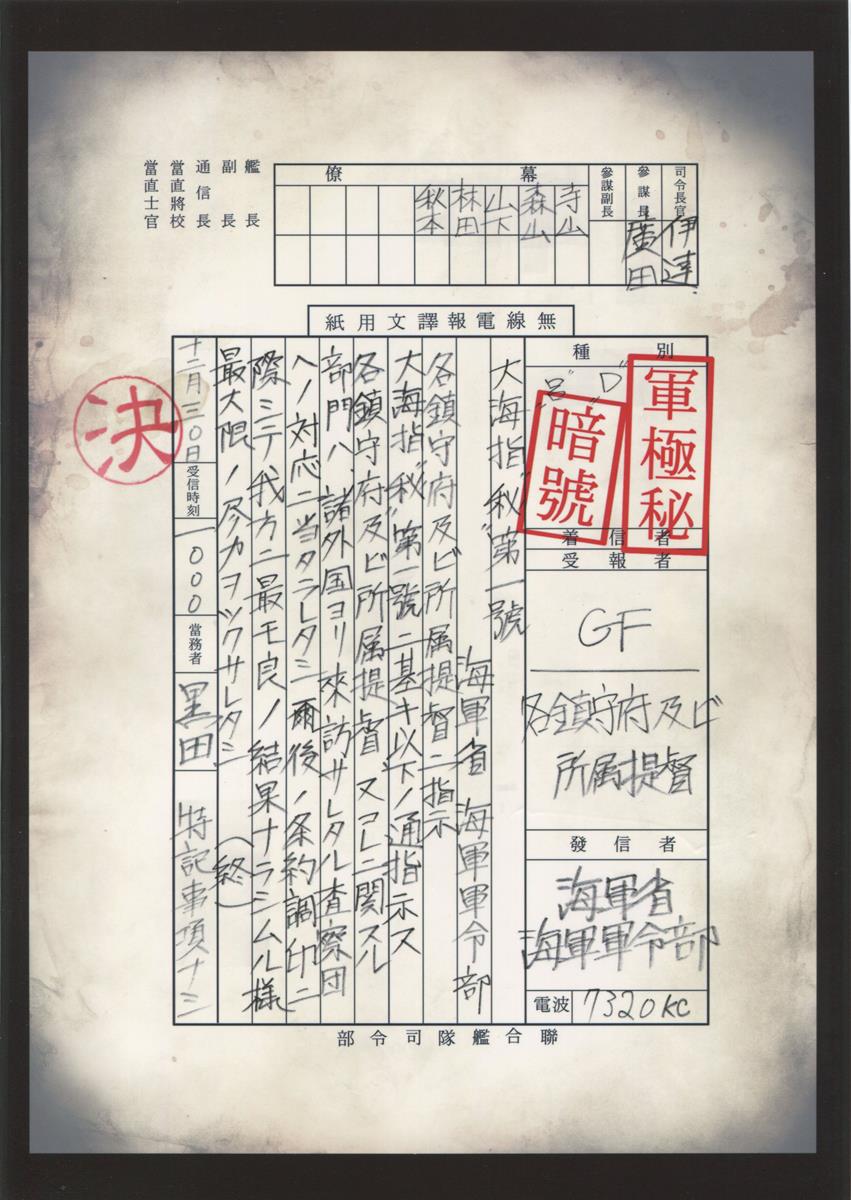 司令長官
伊達
參謀長
廣田
參謀副長
幕僚
寺山
森山
山下
林田
秋本
艦長
副長
通信長
當直將校
當直士官
無線電報譯文用紙
種別
軍極秘
"D"
"呂"
暗號
着信者
受報者
GF
各鎮守府及ビ
所属提督
發信者
海軍省
海軍軍令部
電波
7320KC
大海指"秘"第一號
海軍省 海軍軍令部
各鎮守府及ビ所属提督ニ指示
大海指"秘"第一號ニ基キ以下ノ通指示ス
各鎮守府及ビ所属提督、又コレニ関スル
部門ハ、諸外国ヨリ来訪サレタル査察団
ヘノ対応ニ当タラレタシ 爾後ノ条約調印ニ
際ミテ我方ニ最モ良ノ結果ナラシムル様
最大限ノ尽力ヲツクサレタシ (終)
十二月三〇日
受信時刻
一〇〇〇
當務者
黒田
特記事項ナシ
決
聯合艦隊司令部